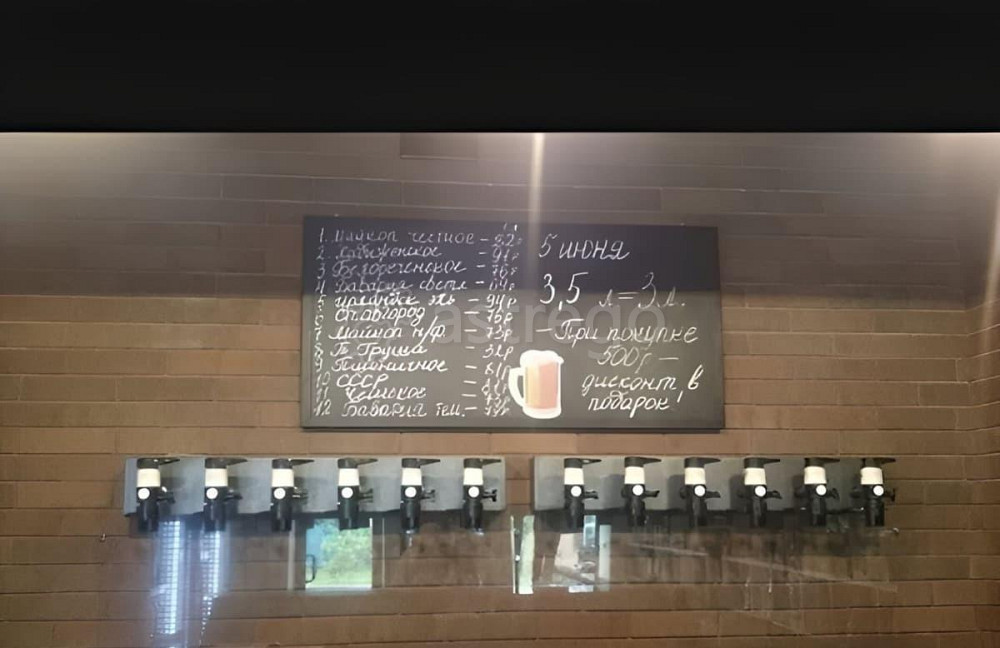 1. Майкоп честное -
2 Хадыженское -
3 Белореченское - 76р
4 Бавария светл -
5 эль - 94р
6 Ставгород - 76р
7 Майкоп н/ф. - 73р
8 Груша - 32р
9 Пшеничное - 81р
10 СССР -
11 Чешское -
12 Бавария тем. -
5 июня
3,5 л=3л.
- При покупке
500р -
дисконт в
подарок!
astrego